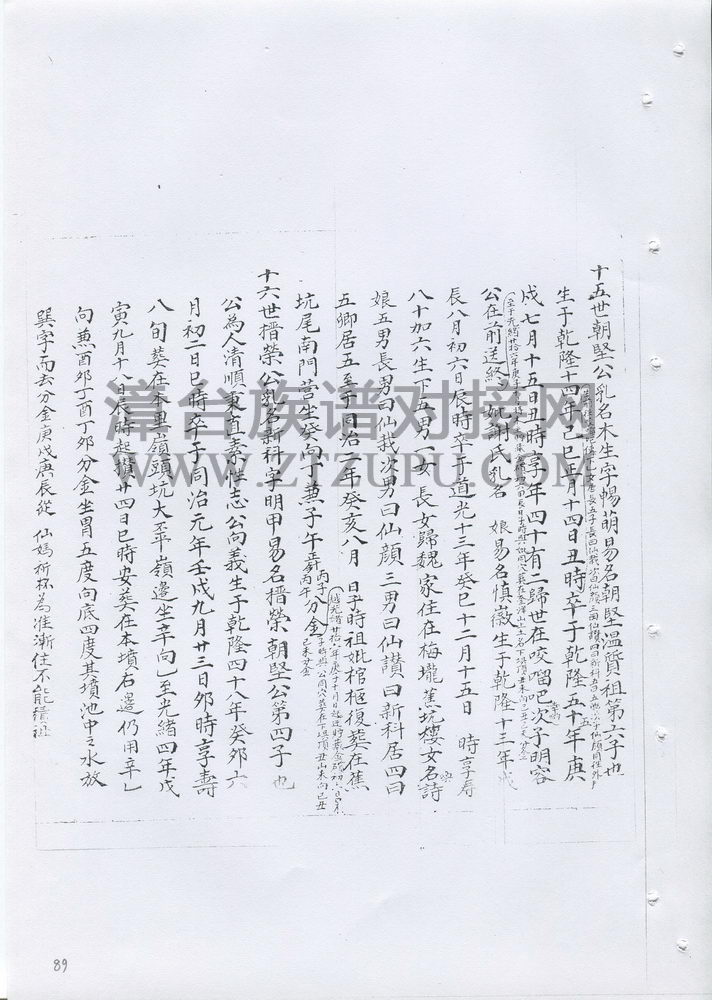 十五世朝堅公乳名木生字暢萌易名朝堅溫質祖第六子也
生于乾隆十四年己巳年月十四日丑時卒于乾隆五十五年庚
戌七月十五日丑時享年四十有二歸世在咬𠺕吧次子明容
公在前送終 妣謝氏乳名 娘易名慎薇生于乾隆十三年戊
辰八月初六日辰時卒于道光十三年癸巳十二月十五日 時享壽
八十加六生下五男一女 長女歸魏家住在梅壠蕉坑樓女名詩
娘五男長男曰仙栽次男曰仙顏三男曰仙讃四曰新科居四曰
五卿居五至于同治二年癸亥八月 日子時祖妣棺柩復葬在蕉
坑尾南門営坐癸向丁兼子午丙子丙午分金
十六世搢榮公乳名新科字明甲易名搢榮朝堅公第四子也
公為人清順秉直素性志公向義生于乾隆四十八年癸卯六
月初二日巳時卒于同治元年壬戌九月廿三日卯時享壽
八旬葬在本里嶺頭坑大平嶺邊坐辛向乚至光緒四年戊
寅九月十八日辰時起攢廿四日巳時安葬在本墳右邊仍用辛乚
向兼酉卯丁酉丁卯分金坐胃五度向底四度其墳池中之水放
巽字而去分金庚戌庚辰從 仙媽祈杯為准漸住不能積祖
漳台族谱对接网
WWW.ZTZUPU.COM
89